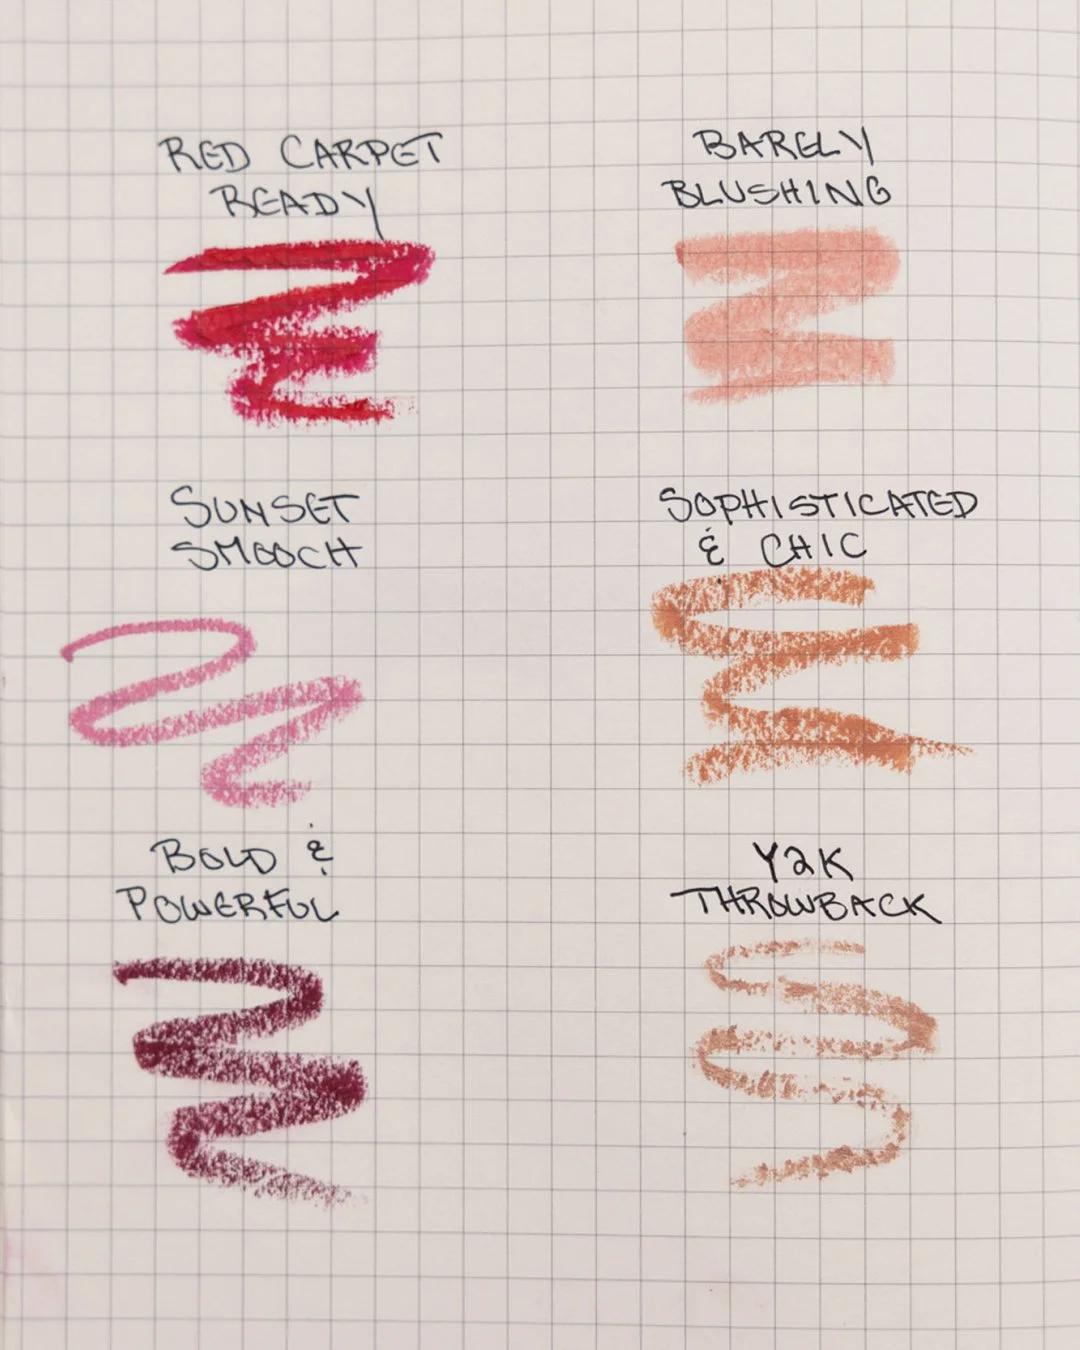 RED CARPET
READY
BARELY
BLUSHING
SUNSET
SMOOCH
SOPHISTICATED
& CHIC
BOLD &
POWERFUL
Y2K
THROWBACK